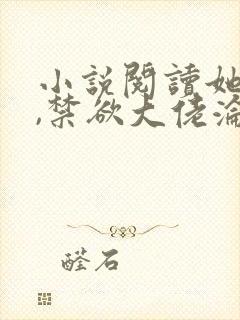 小説閱讀她
,禁欲大佬淪
醛石